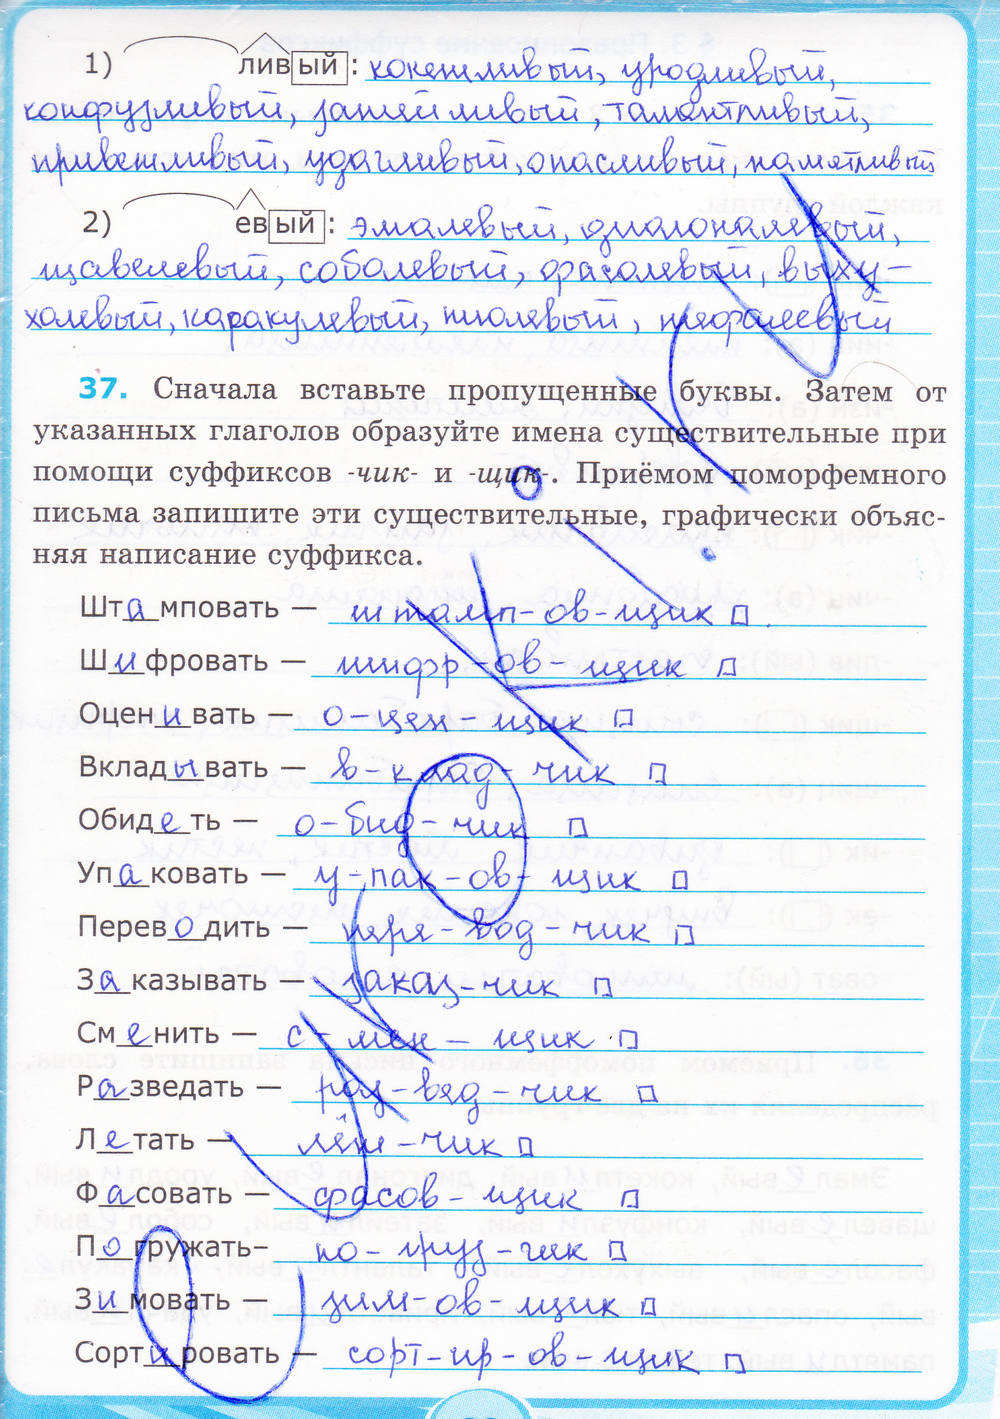 1) ливый: кокетливый, уродливый,
конфузливый, затейливый, талантливый,
приветливый, удачливый, опасливый, памятливый
2) евый: эмалевый, диагоналевый,
щавелевый, соболевый, фасолевый, выху-
холевый, каракулевый, тюлевый,
37. Сначала вставьте пропущенные буквы. Затем от
указанных глаголов образуйте имена существительные при
помощи суффиксов -чик- и -щик-. Приёмом поморфемного
письма запишите эти существительные, графически объяс-
няя написание суффикса.
Штамповать — штамп-ов-щик
Шифровать — шифр-ов-щик
Оценивать — о-цен-щик
Вкладывать — в-клад-чик
Обидеть — о-бид-чик
Упаковать — у-пак-ов-щик
Переводить — пере-вод-чик
Заказывать — заказ-чик
Сменить — с-мен-щик
Разведать — раз-вед-чик
Летать — лёт-чик
Фасовать — фасов-щик
Погружать- по-груз-чик
Зимовать — зим-ов-щик
Сортировать — сорт-ир-ов-щик